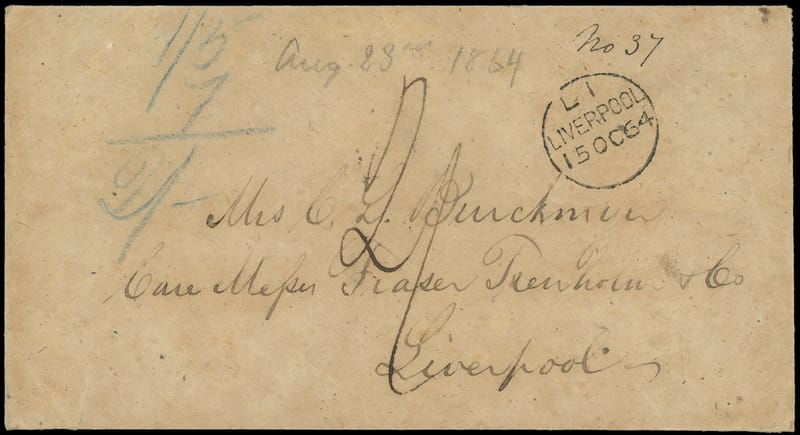 1/5
7
2/-
Aug. 23rd 1864
No 37
L 1
LIVERPOOL
15 OC 64
2/
Mrs C. L. Burckmyer
Care Messrs Fraser Trenholm & Co
Liverpool